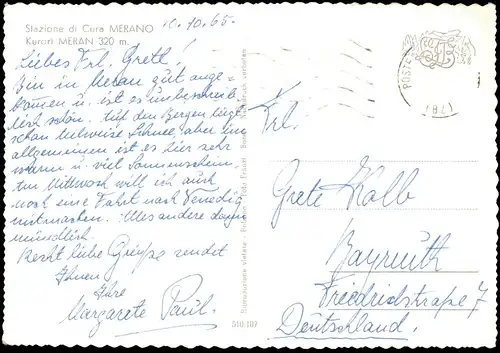 Stazione di Cura MERANO
Kurort MERAN 320 m.
10.10.65.
Liebes Frl. Gretl!
Bin in Meran gut ange-
kommen u. ist es unbeschreib-
lich schön. Auf den Bergen liegt
schon teilweise Schnee, aber im
allgemeinen ist es hier sehr
warm u. viel Sonnenschein.
Am Mittwoch will ich auch
noch eine Fahrt nach Venedig
mitmachen. Alles andere dann
mündlich.
Recht liebe Grüße sendet
Ihnen
Ihre
Margarete Paul.
Riproduzione vietata
Nachdruck verboten
510.107
POSTE
(BZ)
Frl.
Grete Kolb
Bayreuth
Friedrichstraße 7
Deutschland.